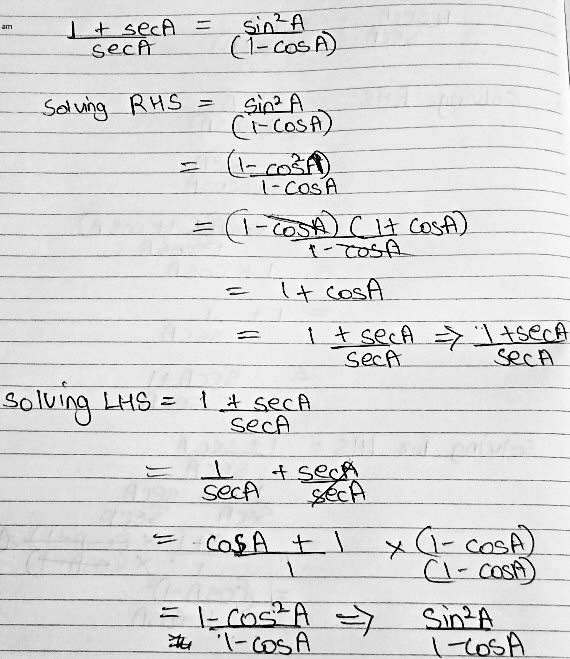 am
1 + secA / secA = sin²A / (1-cosA)
Solving RHS = sin²A / (1-cosA)
= (1-cos²A) / 1-cosA
= (1-cosA) (1+cosA) / 1-cosA
= 1+ cosA
= 1 + secA / secA ⇒ 1+secA / secA
Solving LHS = 1 + secA / secA
= 1 / secA + secA / secA
= cosA + 1 / 1 × (1-cosA) / (1-cosA)
= 1-cos²A / 1-cosA ⇒ Sin²A / 1-cosA